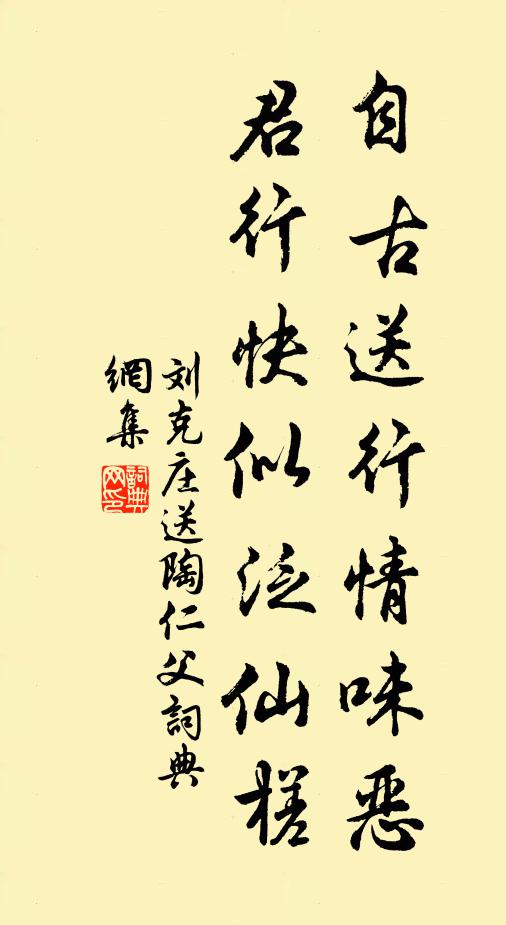 自古送行情味恶
君行快似泛仙槎
刘克庄送陶仁父詞典
網集
詞典
网印